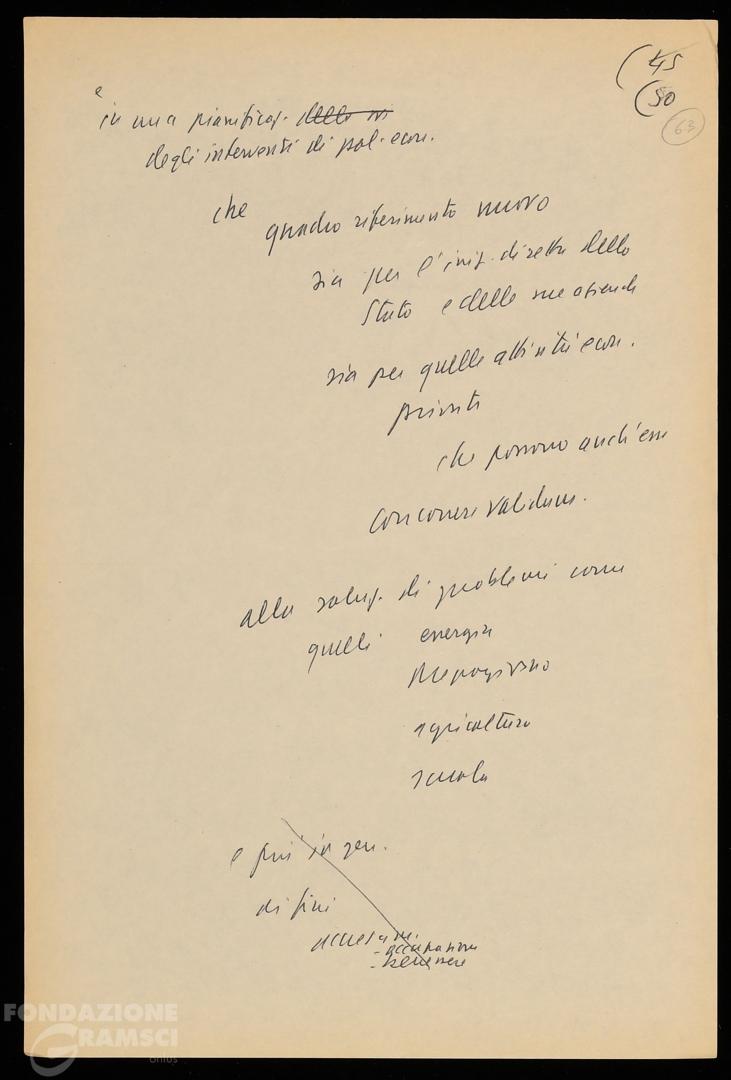 (45
(50
63
e
in una pianificaz. delle in
degli interventi di pol. econ.
che quadro riferimento nuovo
sia per l'iniz. diretta dello
Stato e delle sue aziende
sia per quelle attività econ.
private
che possono anch'esse
concorrere validam.
alla soluz. di problemi come
quelli energia
Mezzogiorno
agricoltura
scuola
e più in gen.
di fini
- occupazione
- benessere
FONDAZIONE
GRAMSCI
onlus